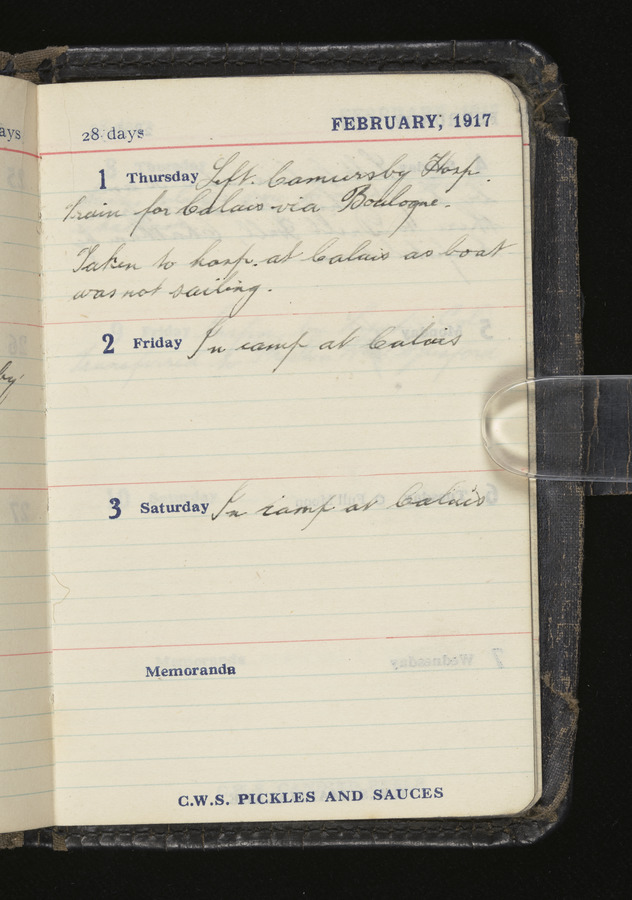 ays
28 days
FEBRUARY, 1917
1 Thursday Left Camiersby Hosp.
Train for Calais via Boulogne.
Taken to hosp. at Calais as boat
was not sailing.
2 Friday In camp at Calais
by
3 Saturday In camp at Calais
Memoranda
C.W.S. PICKLES AND SAUCES